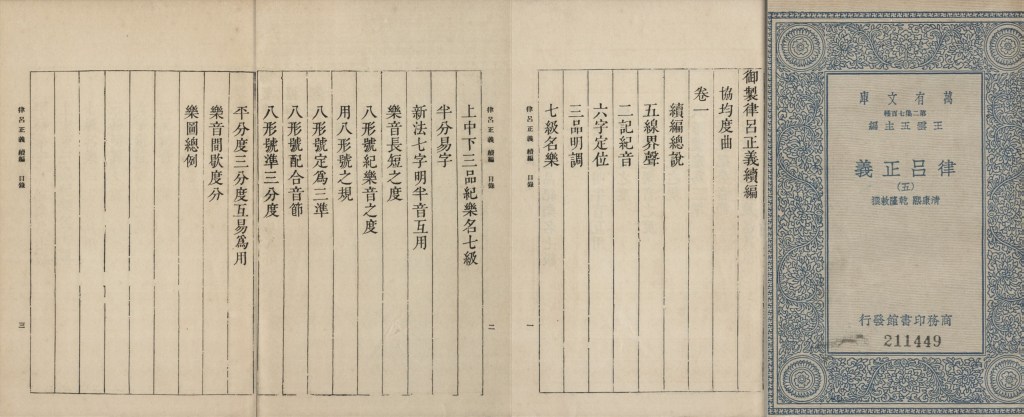 萬有文庫
第二集七百種
王雲五主編
律呂正義
(五)
清康熙 乾隆敕撰
商務印書館發行
211449
御製律呂正義續編
協均度曲
卷一
續編總說
五線界聲
二記紀音
六字定位
三品明調
七級名樂
律呂正義 續編 目錄
一
律呂正義 續編 目錄
二
上中下三品紀樂名七級
半分易字
新法七字明半音互用
樂音長短之度
八形號紀樂音之度
用八形號之規
八形號定為三準
八形號配合音節
八形號準三分度
平分度三分度互易為用
樂音間歇度分
樂圖總例
律呂正義 續編 目錄
三